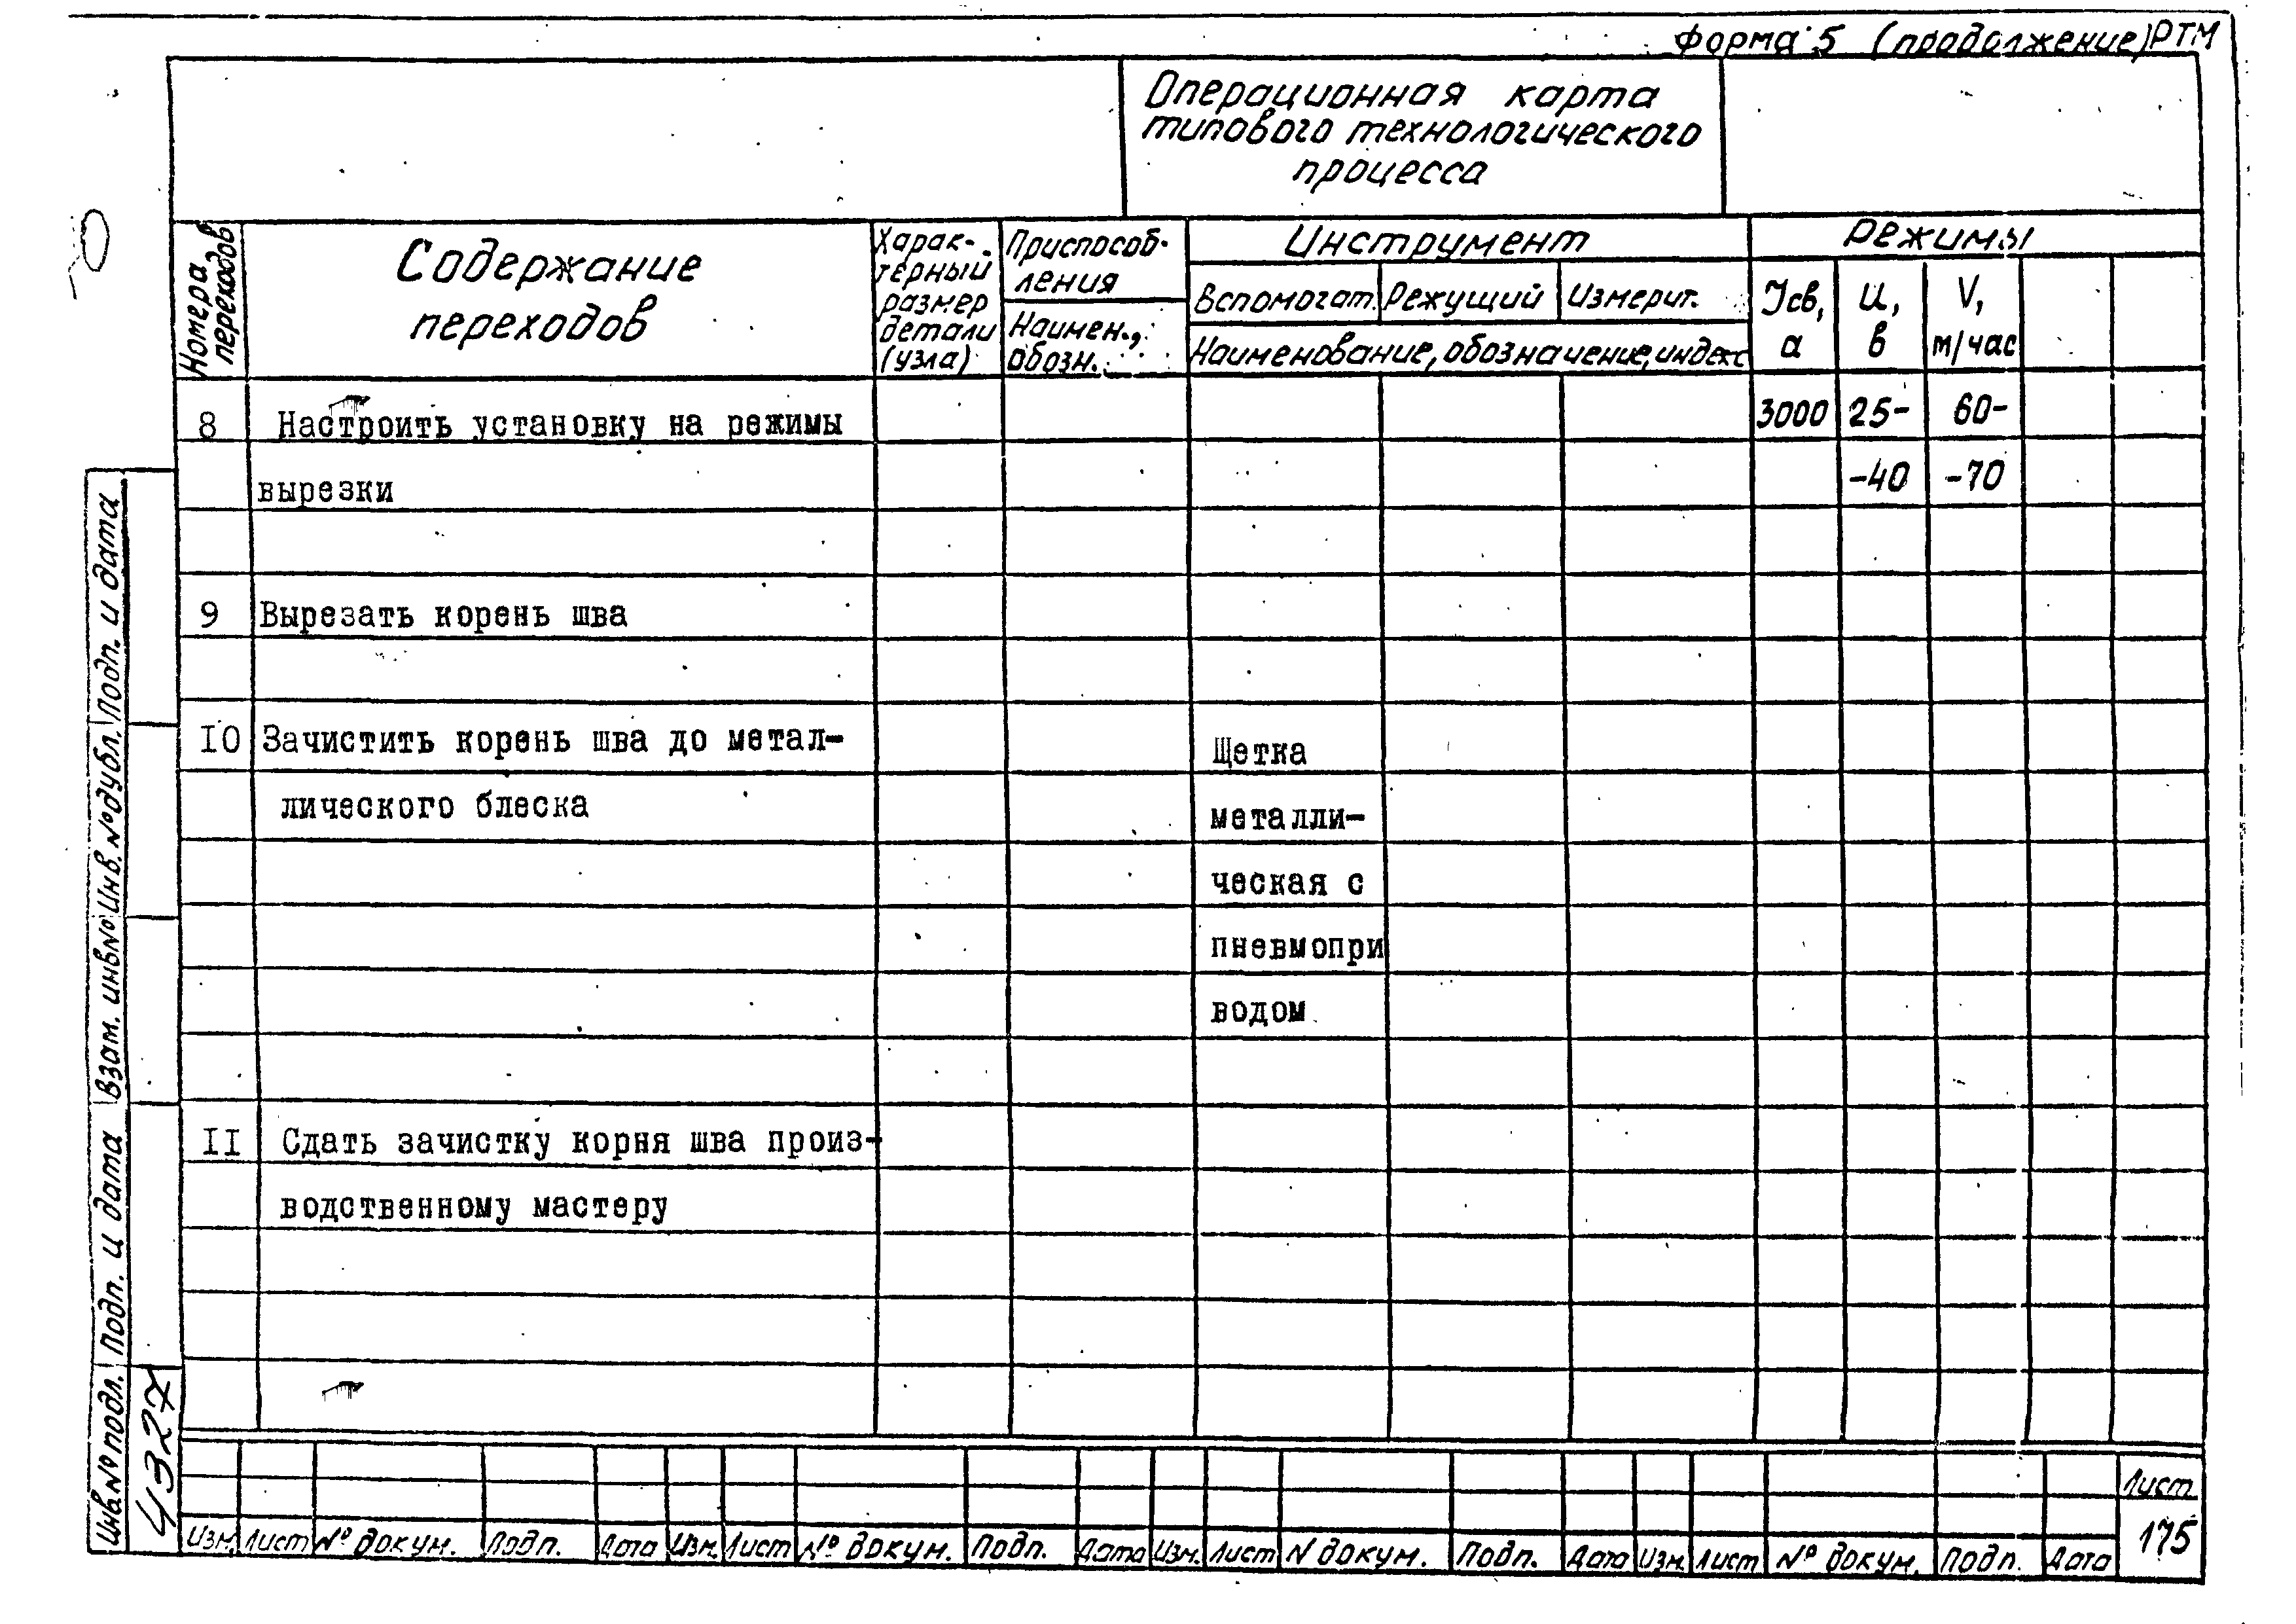 Форма 5 (продолжение) РТМ
Операционная карта
типового технологического
процесса
Номера
переходов
Содержание
переходов
Харак-
терный
размер
детали
(узла)
Приспособ-
ления
Наимен.,
обозн.
Инструмент
Вспомогат. Режущий Измерит.
Наименование, обозначение, индекс
Режимы
Jсв,
а
U,
в
V,
м/час
8 Настроить установку на режимы 3000 25- 60-
вырезки -40 -70
9 Вырезать корень шва
10 Зачистить корень шва до метал- Щетка
лического блеска металли-
ческая с
пневмопри
водом
II Сдать зачистку корня шва произ-
водственному мастеру
Инв№подл. Подп. и дата Взам. инв№ Инв.№дубл. Подп. и дата
4327
Изм. Лист № докум. Подп. Дата Изм. Лист № докум. Подп. Дата Изм. Лист N докум. Подп. Дата Изм. Лист № докум. Подп. Дата
Лист
175